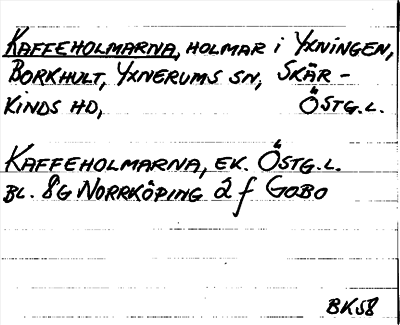 KAFFEHOLMARNA, HOLMAR i YXNINGEN,
BORKHULT, YXNERUMS SN, SKÄR-
KINDS HD, ÖSTG.L.
KAFFEHOLMARNA, EK. ÖSTG.L.
BL. 8G NORRKÖPING 2 f GOBO
BK58